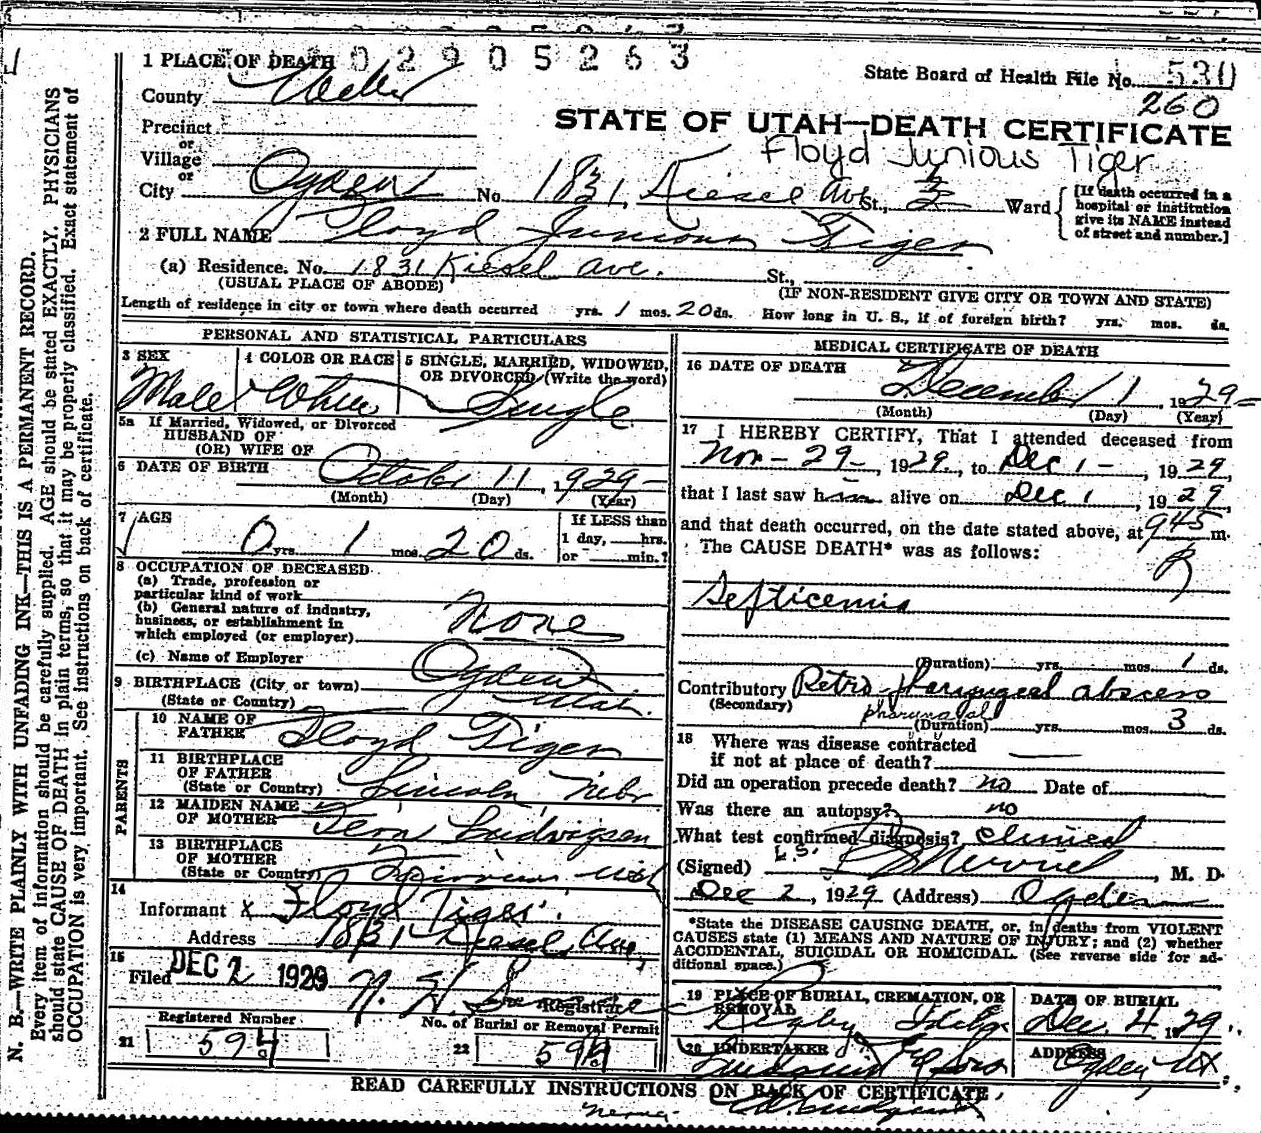 02905263
1 PLACE OF DEATH
State Board of Health File No. 530
County Weber
260
STATE OF UTAH—DEATH CERTIFICATE
Precinct
or
Floyd Junious Tiger
Village
or
City Ogden No. 1831 Kiesel Ave St., 3 Ward
[If death occurred in a hospital or institution give its NAME instead of street and number.]
2 FULL NAME Floyd Junious Tiger
(a) Residence. No. 1831 Kiesel Ave. St.,
(USUAL PLACE OF ABODE) (IF NON-RESIDENT GIVE CITY OR TOWN AND STATE)
Length of residence in city or town where death occurred yrs. 1 mos. 20 ds. How long in U. S., if of foreign birth? yrs. mos. ds.
PERSONAL AND STATISTICAL PARTICULARS
3 SEX Male
4 COLOR OR RACE White
5 SINGLE, MARRIED, WIDOWED, OR DIVORCED (Write the word) Single
5a If Married, Widowed, or Divorced
HUSBAND OF
(OR) WIFE OF
6 DATE OF BIRTH October 11, 1929
(Month) (Day) (Year)
7 AGE 0 yrs. 1 mos. 20 ds.
If LESS than
1 day, hrs.
or min.?
8 OCCUPATION OF DECEASED
(a) Trade, profession or
particular kind of work
(b) General nature of industry,
business, or establishment in
which employed (or employer) None
(c) Name of Employer
9 BIRTHPLACE (City or town) Ogden
(State or Country) Utah.
PARENTS
10 NAME OF
FATHER Floyd Tiger
11 BIRTHPLACE
OF FATHER
(State or Country) Lincoln, Nebr
12 MAIDEN NAME
OF MOTHER Ludwigsen
13 BIRTHPLACE
OF MOTHER
(State or Country)
14
Informant X Floyd Tiger.
Address 1831 Kiesel Ave,
15
Filed DEC 2 1929 Registrar
Registered Number
21 594
No. of Burial or Removal Permit
22 594
MEDICAL CERTIFICATE OF DEATH
16 DATE OF DEATH December 1, 1929
(Month) (Day) (Year)
17 I HEREBY CERTIFY, That I attended deceased from
Nov-29-, 1929, to Dec 1-, 1929,
that I last saw him alive on Dec 1, 1929
and that death occurred, on the date stated above, at 945 m.
The CAUSE DEATH* was as follows:
Septicemia
(Duration) yrs. mos. 1 ds.
Contributory Retro pharyngeal abscess
(Secondary) pharyngeal
(Duration) yrs. mos. 3 ds.
18 Where was disease contracted
if not at place of death?
Did an operation precede death? no Date of
Was there an autopsy? no
What test confirmed diagnosis? Clinical
(Signed) , M. D.
Dec 2, 1929 (Address) Ogden
*State the DISEASE CAUSING DEATH, or, in deaths from VIOLENT
CAUSES state (1) MEANS AND NATURE OF INJURY; and (2) whether
ACCIDENTAL, SUICIDAL OR HOMICIDAL. (See reverse side for ad-
ditional space.)
19 PLACE OF BURIAL, CREMATION, OR
REMOVAL Rigby Idaho
DATE OF BURIAL
Dec. 4, 1929.
20 UNDERTAKER
ADDRESS
Ogden, Ut
READ CAREFULLY INSTRUCTIONS ON BACK OF CERTIFICATE
N. B.—WRITE PLAINLY WITH UNFADING INK—THIS IS A PERMANENT RECORD.
Every item of information should be carefully supplied. AGE should be stated EXACTLY. PHYSICIANS
should state CAUSE OF DEATH in plain terms, so that it may be properly classified. Exact statement of
OCCUPATION is very important. See instructions on back of certificate.